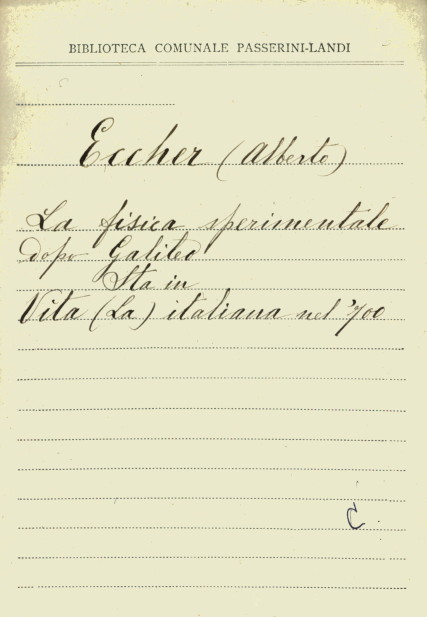 BIBLIOTECA COMUNALE PASSERINI-LANDI
Eccher (Alberto)
La fisica sperimentale
dopo Galileo
Sta in
Vita (La) italiana nel '700
C.